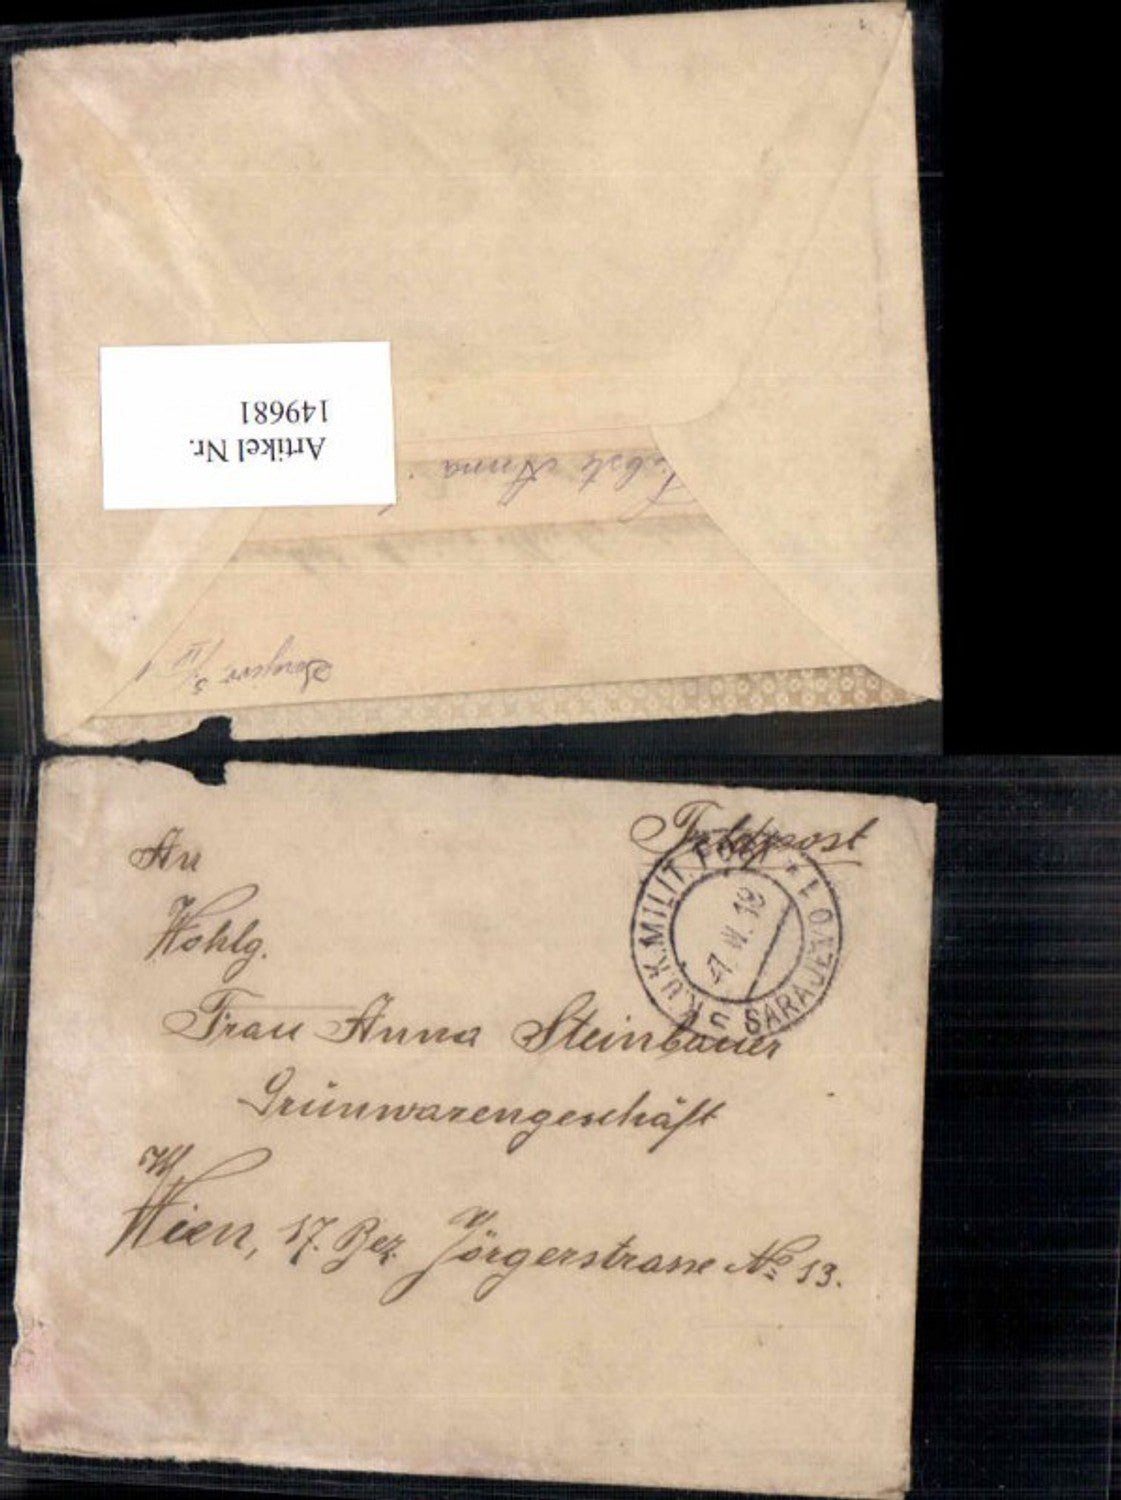 Artikel Nr.
149681
Liebste Anna
Sarajevo 5/VI
Feldpost
K.U.K. MILIT. POST
SARAJEVO 1
7. VI. 18
An
Wohlg.
Frau Anna Steinbauer
Grünwarengeschäft
Wien, 17. Bez. Jörgerstrasse No 13.